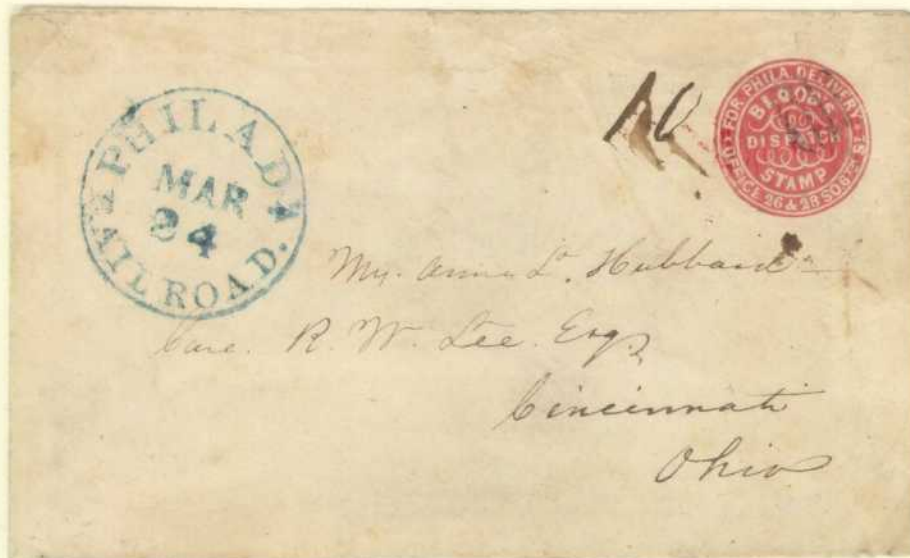 PHILADA RAIL ROAD.
MAR
24
10
FOR PHILA. DELIVERY
BLOODS
DISPATCH
STAMP
OFFICE 26 & 28 SO. 6TH ST
Anna L. Hubbard
Care. R. W. Lee. Esq
Cincinnati
Ohio